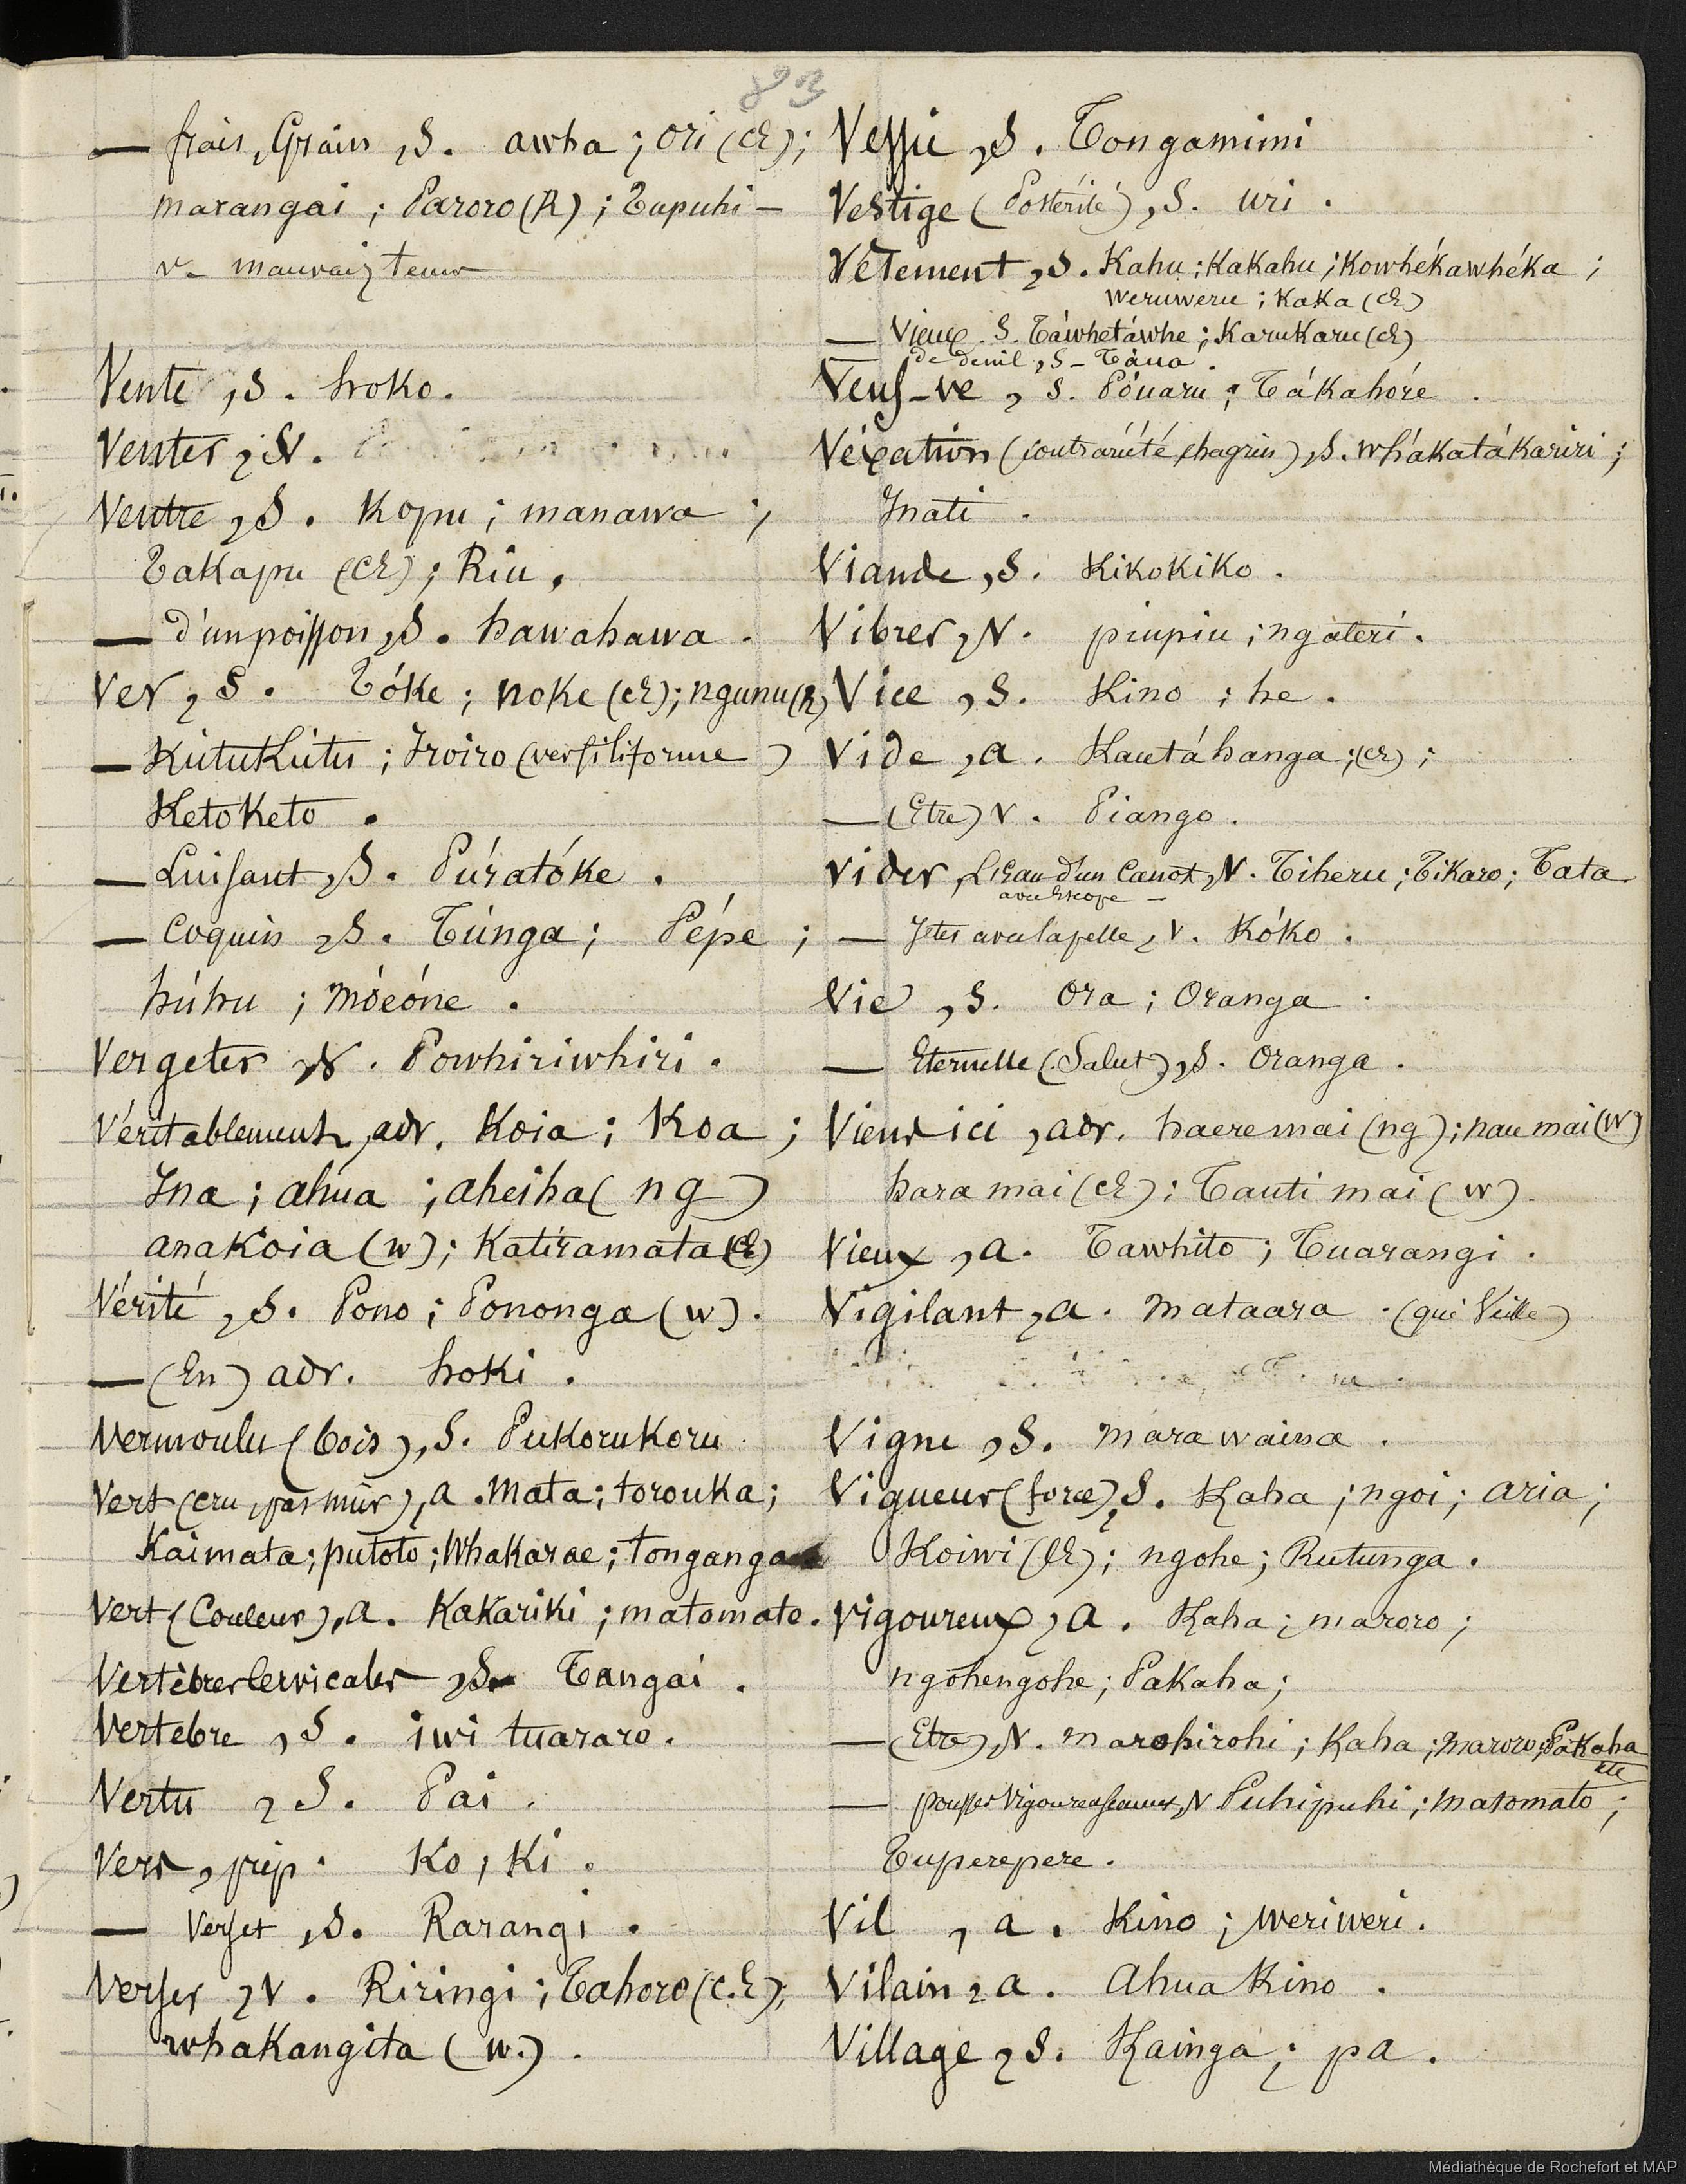 83
— frais, Grain, S. awha ; ori (CE) ;
marangai ; Paroro (R) ; Tupuhi —
v— mauvaiz tems
Vente, S. hoko.
Venter, N.
Ventre, S. Kopu ; manawa ;
Takapu (CE) ; Riu.
— d'un poisson, S. hawahawa.
Ver, S. Tóke ; noke (CE) ; ngunu (R)
— Kutukutu ; Iroiro (ver filiforme)
Ketoketo.
— Luisant, S. Púratóke.
— Coquin, S. Túnga ; Pépe ;
húhu ; móeóne.
Vergeter, N. Powhiriwhiri.
Véritablement, adv. Koia ; Koa ;
Ina ; ahua ; aheiha (ng)
anakoia (w) ; Katiramata (CE)
Vérité, S. Pono ; Pononga (w).
— (En) adv. hoki.
Vermoulu (bois), S. Pukorukoru
Vert (cru, pas mûr), a. Mata ; torouka ;
Kaimata ; putoto ; Whakarae ; tonganga
Vert (Couleur), a. Kakariki ; matomato.
Vertèbres Cervicales, S. Tangai.
Vertebre, S. iwi tuararo.
Vertu, S. Pai.
Vers, prép. Ko, Ki.
— Verset, S. Rarangi.
Verser, V. Riringi ; Tahoro (C.E) ;
whakangita (w.).
Vessie, S. Tongamimi
Vestige (Postérité), S. uri.
Vêtement, S. Kahu ; Kakahu ; Kowhékawhéka ;
weruweru ; Kaka (CE)
— Vieux. S. Táwhetáwhe ; Karukaru (CE)
— de deuil, S — Táua.
Veuf-ve, S. Póuaru ; Tákahóre.
Véxation (contrariété chagrin), S. whákatákariri ;
Inati.
Viande, S. Kikokiko.
Vibrer, N. piupiu ; ngateri.
Vice, S. Kino ; he.
Vide, a. Kautáhanga ; (CE) ;
— (Etre) V. Piango.
Vider, L'Eau d'un Canot, N. Tiheru ; Tikaro ; Tata
avec Escope —
— Jeter avec la pelle, V. Kóko.
Vie, S. Ora ; Oranga.
— Eternelle (Salut), S. Oranga.
Viens ici, adv. haere mai (ng) ; nau mai (w)
hara mai (CE) ; Tauti mai (w).
Vieux, a. Tawhito ; Tuarangi.
Vigilant, a. mataara. (qui Veille)
Vigne, S. mara waina.
Vigueur (force), S. Kaha ; ngoi ; aria ;
Koiwi (CE) ; ngohe ; Rutunga.
Vigoureux, a. Kaha ; maroro ;
ngohengohe ; Pakaha ;
— (Etre), N. marohirohi ; Kaha ; maroro ; Pakaha
etc
— pousser Vigoureusement, N Puhipuhi ; matomato ;
Tuperepere.
Vil, a. Kino ; weriweri.
Vilain, a. Ahua Kino.
Village, S. Kainga ; pa.
Médiathèque de Rochefort et MAP